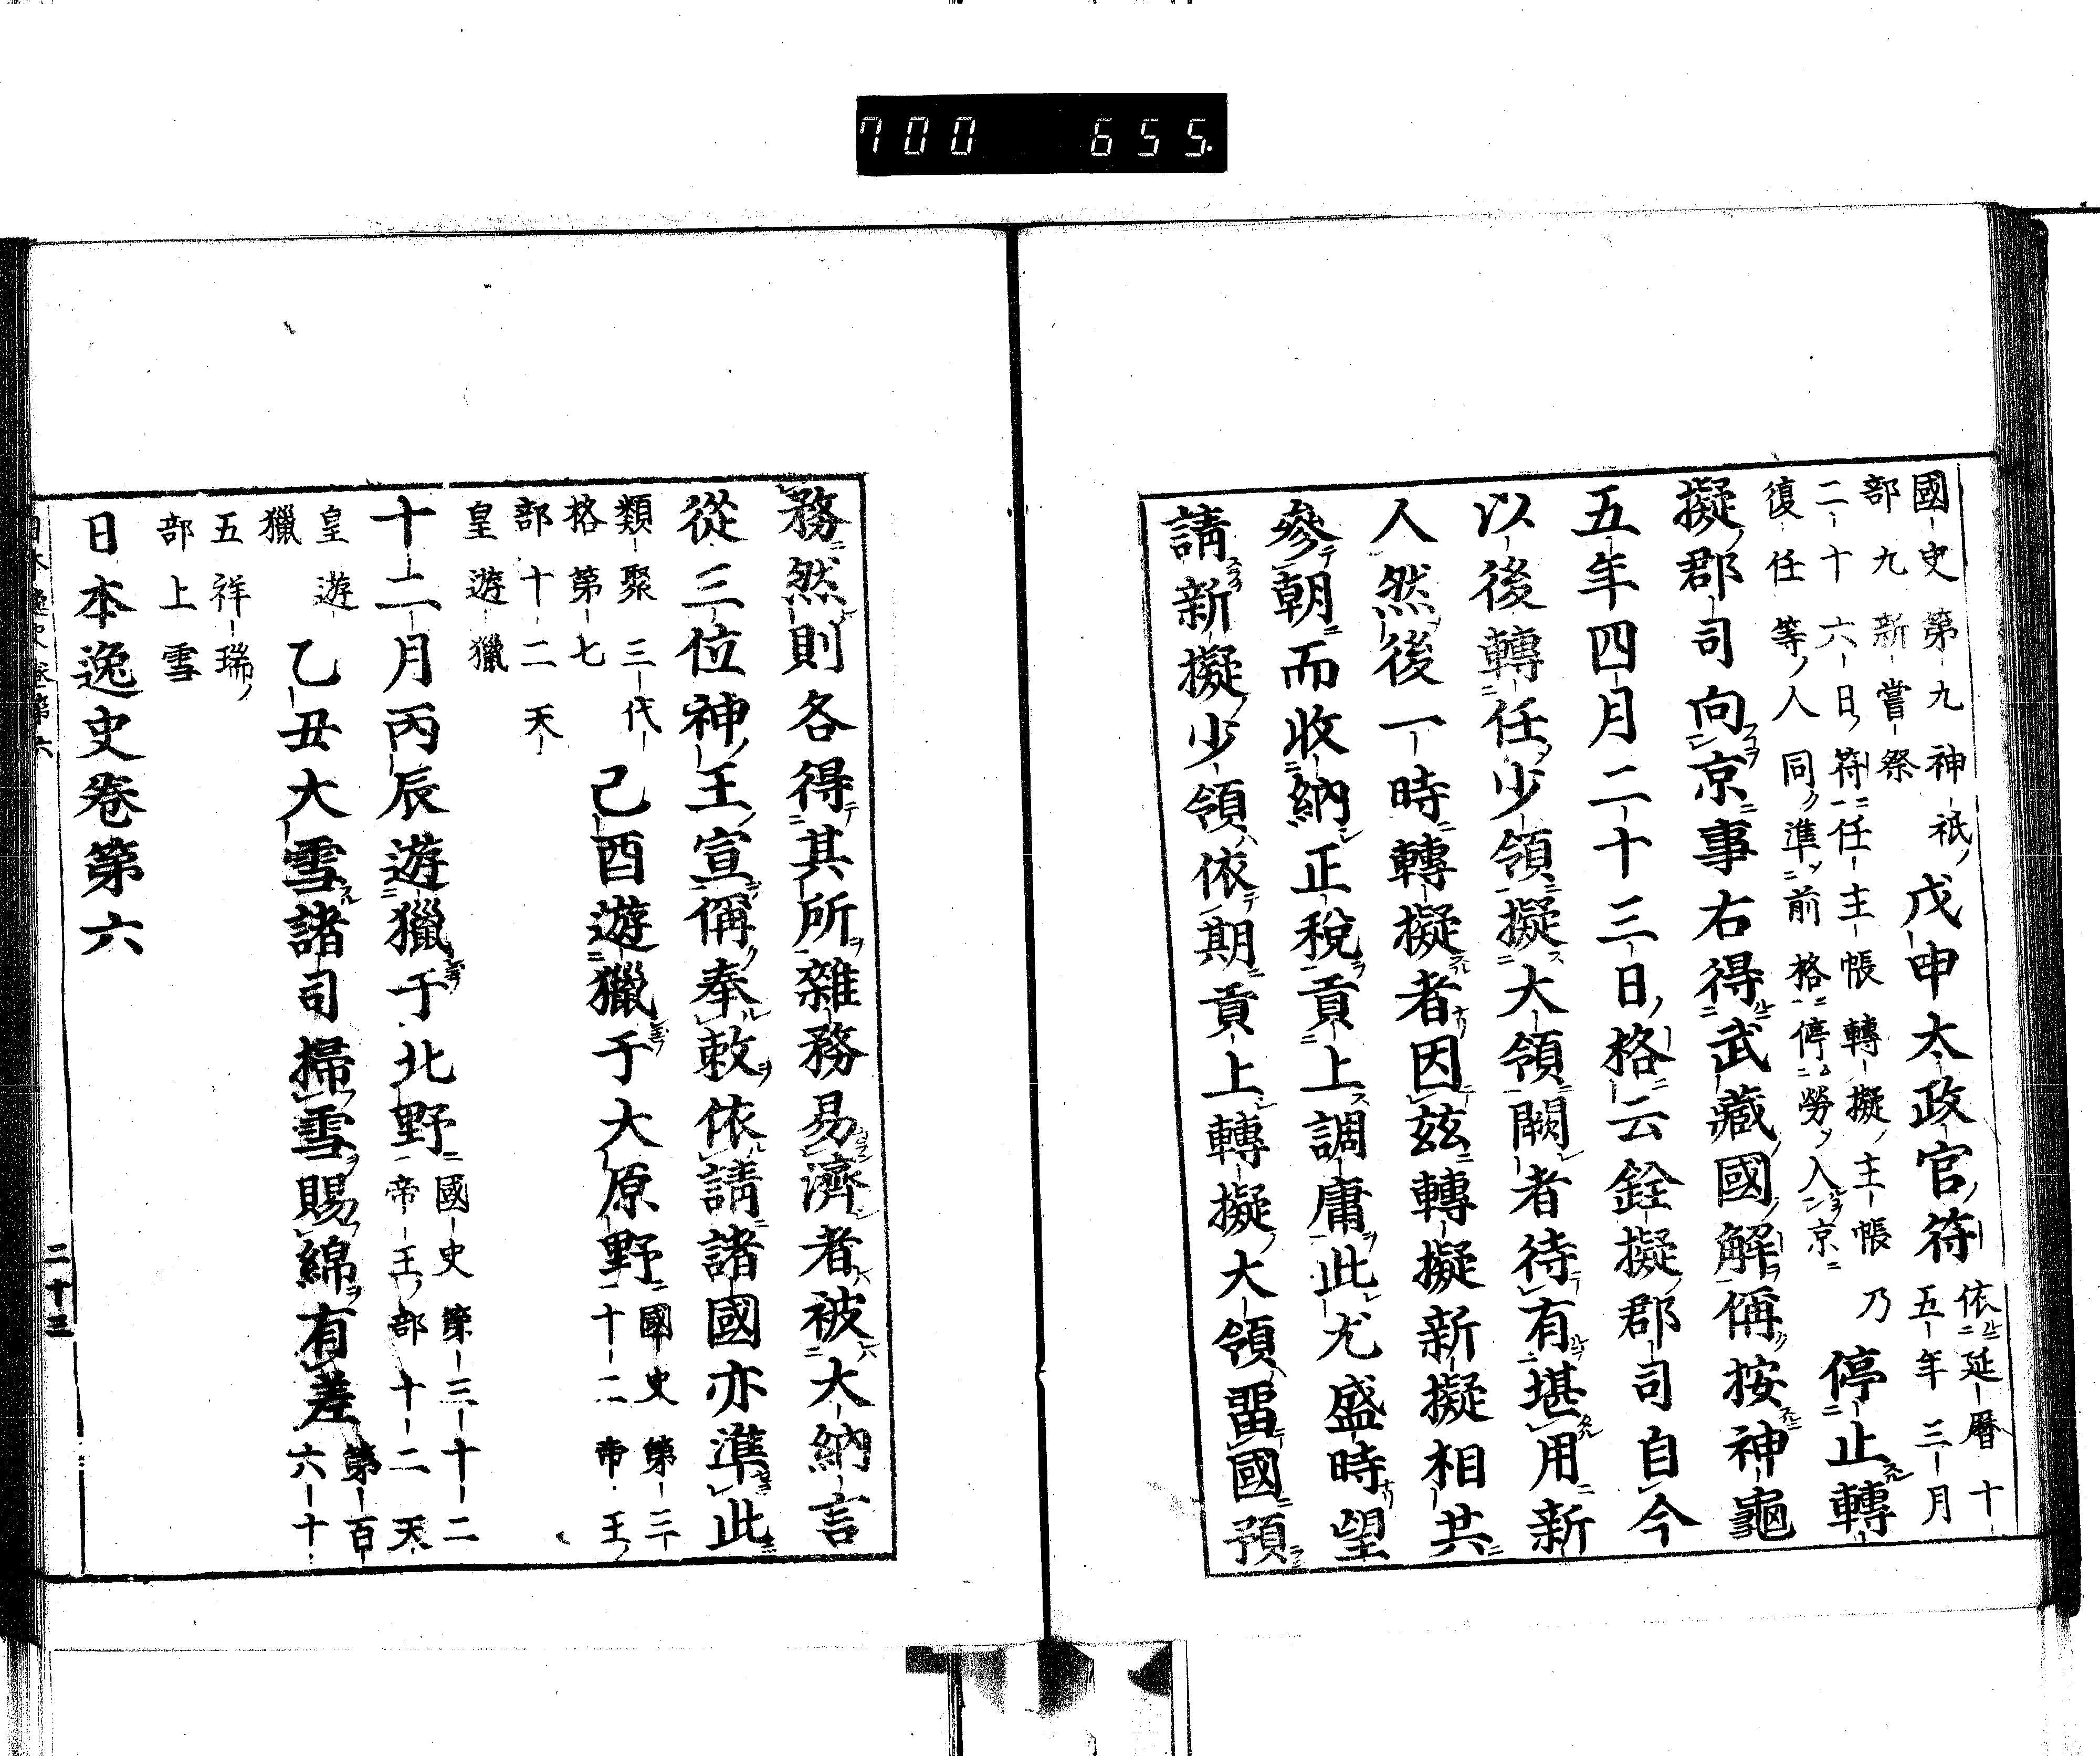 700 655.
國史第九神祇部九新嘗祭 戊申太政官符 依延曆十五年三月
二十六日符任主帳轉擬主帳乃復任等人同準前格停勞入京 停止轉
擬郡司向京事右得武藏國解偁按神龜
五年四月二十三日格云銓擬郡司自今
以後轉任少領擬大領闕者待有堪用新
人然後一時轉擬者因茲轉擬新擬相共
參朝而收納正稅貢上調庸此尤盛時望
請新擬少領依期貢上轉擬大領留國預
務然則各得其所雜務易濟者被大納言
從三位神王宣偁奉敕依請諸國亦準此
類聚三代格第七 己酉遊獵于大原野 國史第三十二帝王
部十二天皇遊獵
十二月丙辰遊獵于北野 國史第三十二帝王部十二天
皇遊獵 乙丑大雪諸司掃雪賜綿有差 第百六十
五祥瑞部上雪
日本逸史卷第六
日本逸史卷第六 二十三